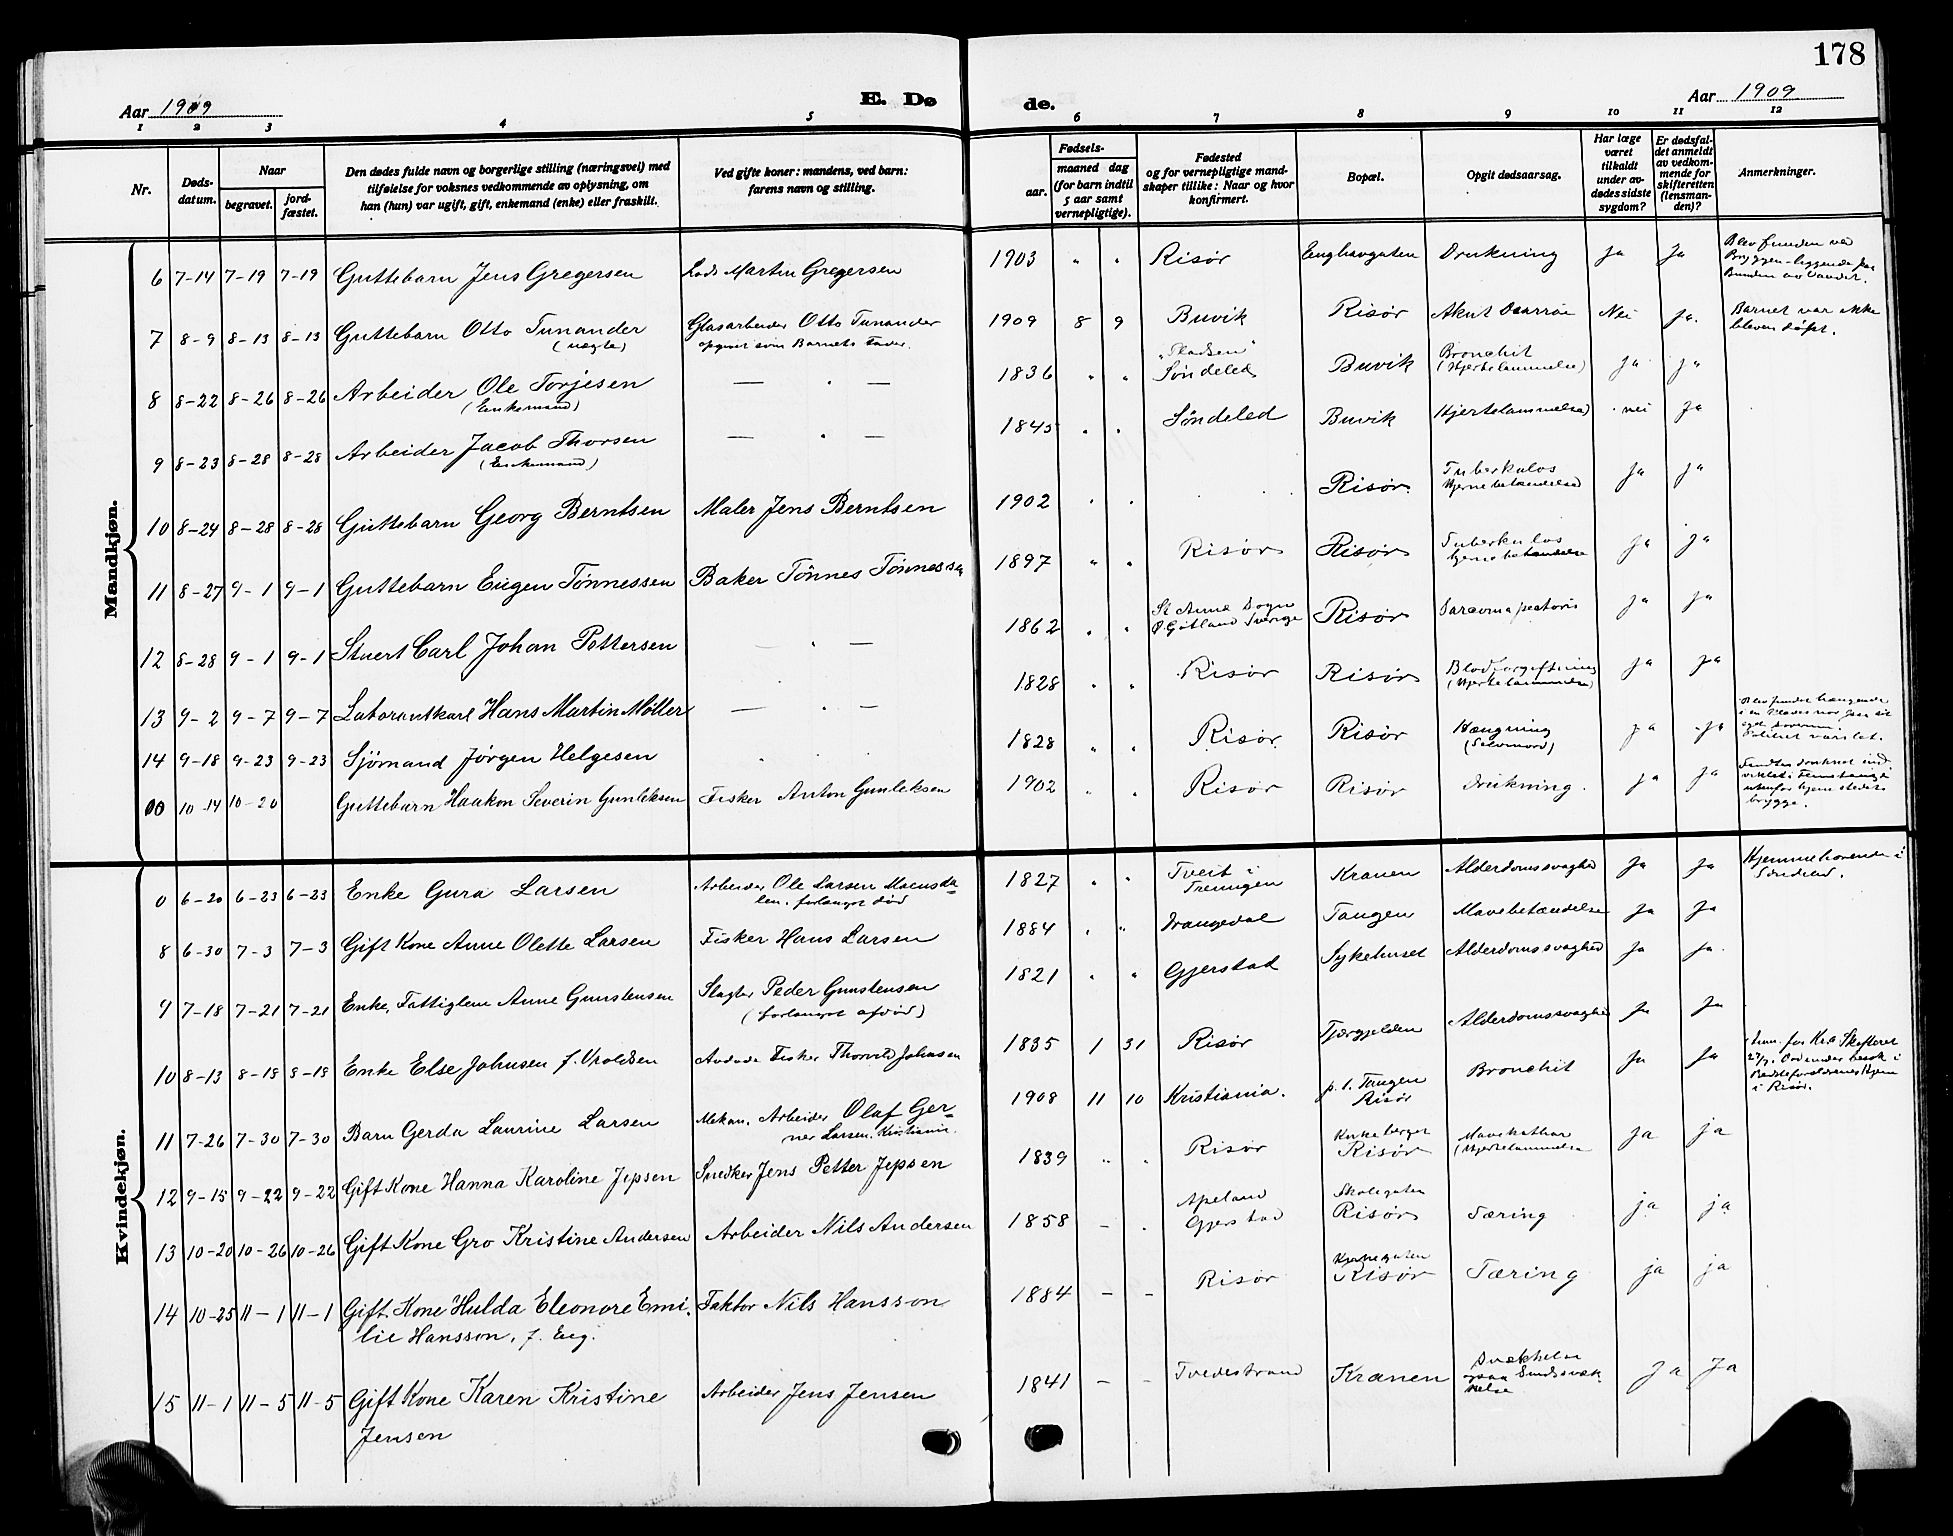 178
Aar 1909 E. Dø de. Aar 1909
1 2 3 4 5 6 7 8 9 10 11 12
Nr.
Døds-
datum.
Naar
begravet.
jord-
fæstet.
Den dødes fulde navn og borgerlige stilling (næringsvei) med
tilføielse for voksnes vedkommende av oplysning, om
han (hun) var ugift, gift, enkemand (enke) eller fraskilt.
Ved gifte koner: mandens, ved barn:
farens navn og stilling.
Fødsels-
aar.
maaned dag
(for barn indtil
5 aar samt
vernepligtige).
Fødested
og for vernepligtige mand-
skaper tillike: Naar og hvor
konfirmert.
Bopæl.
Opgit dødsaarsag.
Har læge
været
tilkaldt
under av-
dødes sidste
sygdom?
Er dødsfal-
det anmeldt
av vedkom-
mende for
skifteretten
(lensman-
den)?
Anmerkninger.
Mandkjøn.
6 7-14 7-19 7-19 Guttebarn Jens Gregersen Lods Martin Gregersen 1903 " " Risør Enghavgaten Drukning Ja Ja
Blev funden ved
Bryggen - liggende paa
Bunden av Vandet.
7 8-9 8-13 8-13 Guttebarn Otto Tunander Glasarbeider Otto Tunander 1909 8 9 Buvik Risør Akut Diarrøe Nei Ja.
(uægte) opgivet som Barnets Fader.
Barnet var ikke
bleven døpt.
8 8-22 8-26 8-26 Arbeider Ole Torjesen — " — 1836 " " "Pladsen" Søndeled Buvik Bronchit Ja Ja
(Enkemand) (Hjertelammelse)
9 8-23 8-28 8-28 Arbeider Jacob Thorsen — " — 1845 " " Søndeled Buvik Hjertelammelse nei Ja
(Enkemand)
10 8-24 8-28 8-28 Guttebarn Georg Berntsen Maler Jens Berntsen 1902 " " Risør. Tuberkuløs Ja Ja
Hjernebetændelse
11 8-27 9-1 9-1 Guttebarn Eugen Tønnessen Baker Tønnes Tønnessen 1897 " " Risør Risør Tuberkuløs Ja Ja
hjernebetændelse
12 8-28 9-1 9-1 Stuert Carl Johan Pettersen " — 1862 " " St Anna Sogn Risør Sarcoma pectoris Ja Ja
Ø. Gøtland Sverige
13 9-2 9-7 9-7 Laborantkarl Hans Martin Møller — " — 1828 " " Risør Risør Blodforgiftning Ja Ja
(Hjertelammelse)
14 9-18 9-23 9-23 Sjømand Jørgen Helgesen 1828 " " Risør Risør Hængning Ja Ja
(Selvmord)
Blev fundet hængende
Politiet varslet.
00 10-14 10-20 Guttebarn Haakon Severin Gunleksen Fisker Anton Gunleksen 1902 " " Risør Risør Drukning. Ja Ja
utenfor hjemstedets
brygge.
Kvindekjøn.
0 6-20 6-23 6-23 Enke Gura Larsen Arbeider Ole Larsen Moensda- 1827 " " Tveit i Kranen Alderdomssvaghed Ja Ja
len. forlængst død Treungen
Hjemmehørende i
Søndeled.
8 6-30 7-3 7-3 Gift Kone Anne Olette Larsen Fisker Hans Larsen 1884 " " Drangedal Tangen Mavebetændelse Ja Ja
9 7-18 7-21 7-21 Enke, Fattiglem Anne Gunstensen Slagter Peder Gunstensen 1821 " " Gjerstad Sykehuset Alderdomssvaghed Ja Ja
(forlængst afdød)
10 8-13 8-18 8-18 Enke Else Johnsen Avdøde Fisker Thorvald Johnsen 1835 1 31 Risør Alderdomssvaghed Ja Ja
11 7-26 7-30 7-30 Barn Gerda Laurine Larsen Mekan. Arbeider Olaf Ger- 1908 11 10 Kristiania. p.t. Tangen Bronchit Ja Ja
ner Larsen, Kristiania. Risør
Død under besøk i
Bedsteforældrenes Hjem
i Risør.
12 9-15 9-22 9-22 Gift Kone Hanna Karoline Jepsen Snedker Jens Petter Jepsen 1839 " " Risør Kirkeberget Mavekathar Ja Ja
Risør (Hjertelammelse
13 10-20 10-26 10-26 Gift Kone Gro Kristine Andersen Arbeider Nils Andersen 1858 — " Apeland Skolegaten Tæring ja ja
Gjerstad Risør
14 10-25 11-1 11-1 Gift Kone Hulda Eleonore Emi- Faktor Nils Hansson 1884 — — Risør Risør Tæring ja ja
lie Hansson, f. Eng.
15 11-1 11-5 11-5 Gift Kone Karen Kristine Arbeider Jens Jensen 1841 — — Tvedestrand Kranen Ja Ja
Jensen